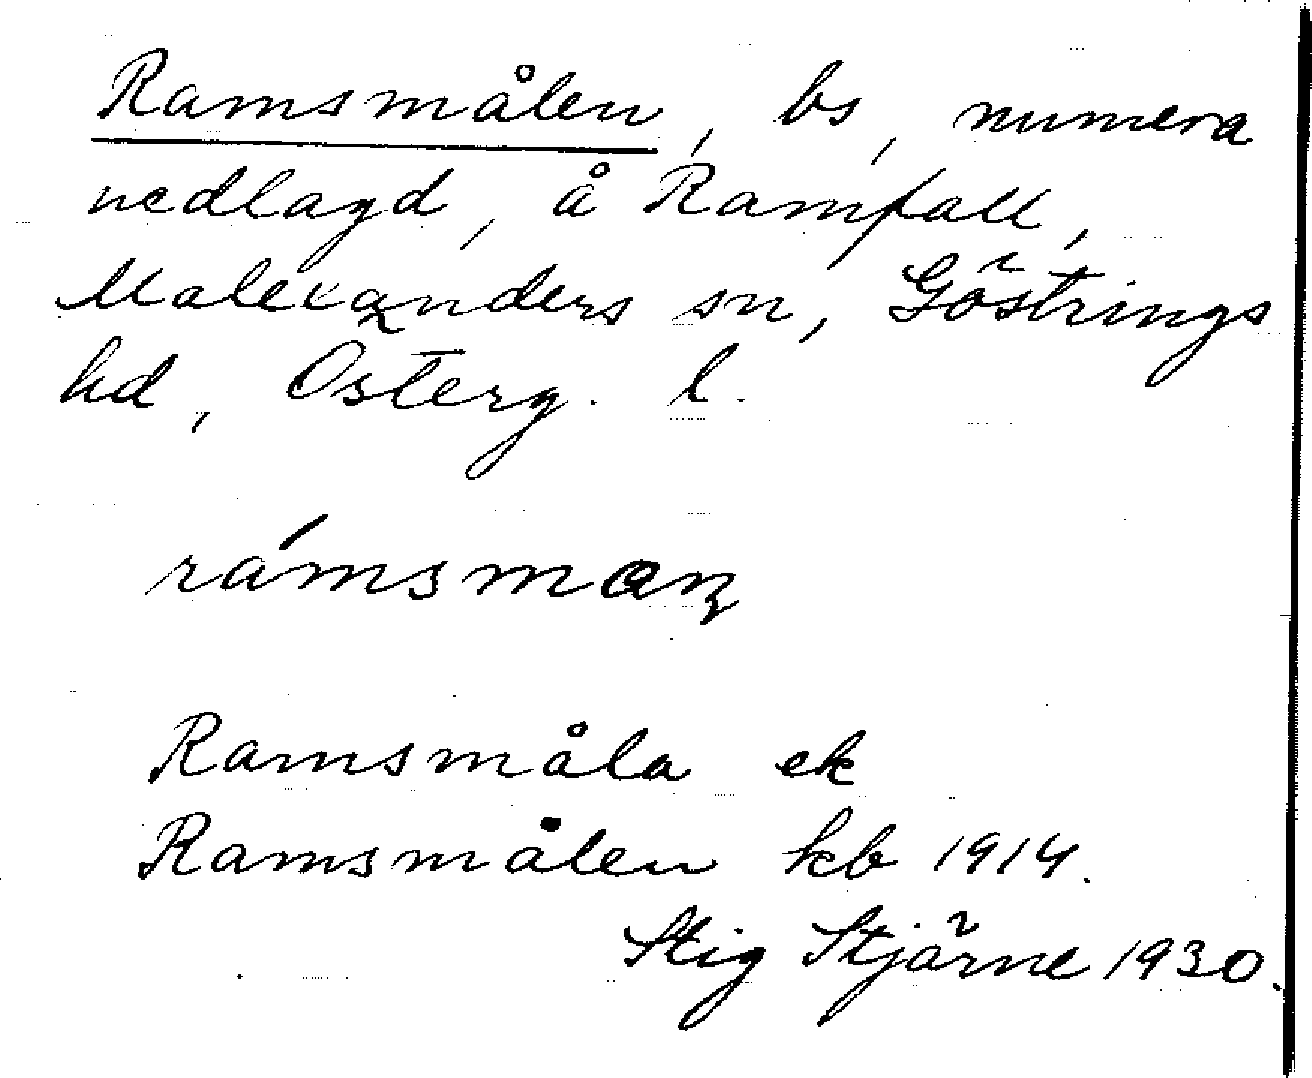 Ramsmålen, bs, numera
nedlagd, å Ramfall,
Malexanders sn, Göstrings
hd, Österg. l.
Ramsmåla ek
Ramsmålen kb 1914.
Stig Stjärne 1930.